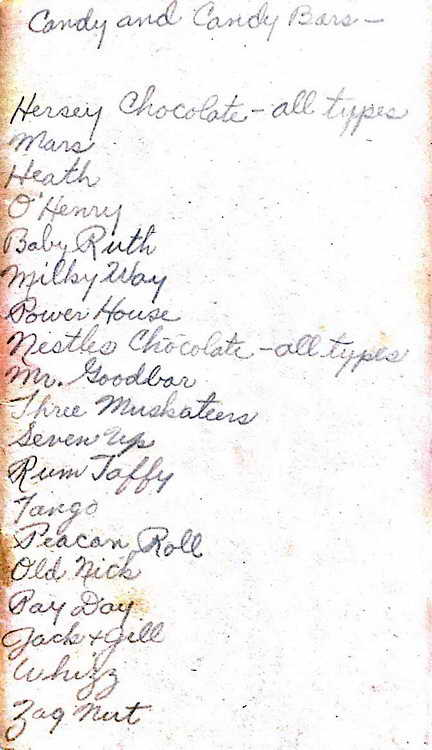 Candy and Candy Bars -
Hersey Chocolate - all types
Mars
Heath
O'Henry
Baby Ruth
Milky Way
Power House
Nestles Chocolate - all types
Mr. Goodbar
Three Muskateers
Seven Up
Rum Taffy
Tango
Peacan Roll
Old Nick
Pay Day
Jack + Jill
Whizz
Zag Nut